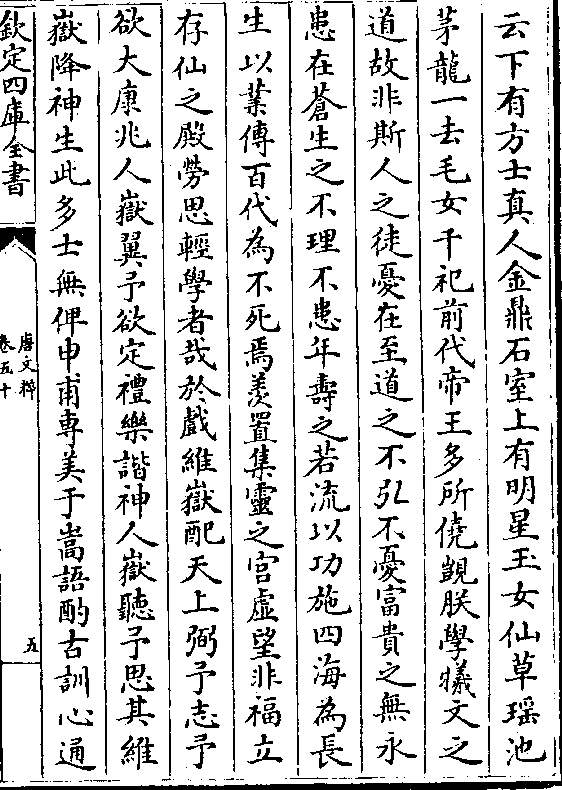 云下有方士真人金鼎石室上有明星玉女仙草瑶池
茅龍一去毛女千祀前代帝王多所僥覬朕學犧文之
道故非斯人之徒憂在至道之不弘不憂富貴之無永
患在蒼生之不理不患年壽之若流以功施四海為長
生以業傳百代為不死焉羨置集靈之宫虛望非福立
存仙之殿勞思輕學者哉於戲維嶽配天上弼予志予
欲大康兆人嶽翼予欲定禮樂諧神人嶽聽予思其維
嶽降神生此多士無俾申甫専美于嵩語酌古訓心通
欽定四庫全書
唐文粹
卷五十
五